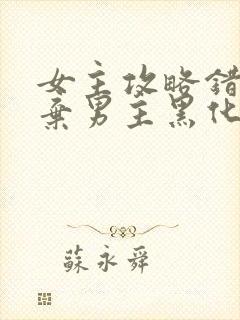 女主攻略錯
棄男主黑化
蘇永舜